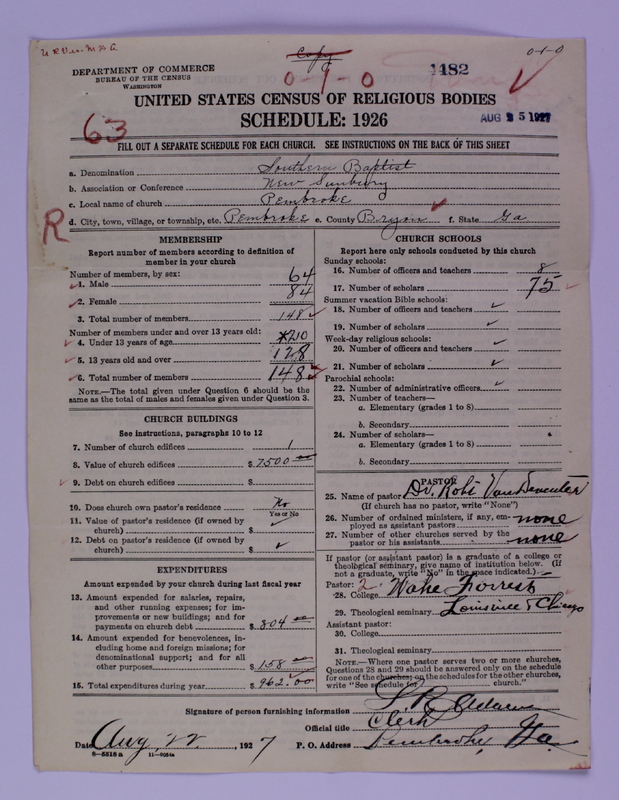 Copy
0-1-0
DEPARTMENT OF COMMERCE
BUREAU OF THE CENSUS
WASHINGTON
0 1 0
1482
UNITED STATES CENSUS OF RELIGIOUS BODIES
SCHEDULE: 1926
AUG 25 1927
63
FILL OUT A SEPARATE SCHEDULE FOR EACH CHURCH. SEE INSTRUCTIONS ON THE BACK OF THIS SHEET
a. Denomination Southern Baptist
b. Association or Conference New Sunbury
c. Local name of church Pembroke
d. City, town, village, or township, etc. Pembroke e. County Bryan f. State Ga
R
MEMBERSHIP
Report number of members according to definition of
member in your church
Number of members, by sex:
1. Male 64
2. Female 84
3. Total number of members 148
Number of members under and over 13 years old:
4. Under 13 years of age 20
5. 13 years old and over 128
6. Total number of members 148
NOTE.—The total given under Question 6 should be the
same as the total of males and females given under Question 3.
CHURCH BUILDINGS
See instructions, paragraphs 10 to 12
7. Number of church edifices 1
8. Value of church edifices $ 7500
9. Debt on church edifices $
10. Does church own pastor's residence No
Yes or No
11. Value of pastor's residence (if owned by
church) $
12. Debt on pastor's residence (if owned by
church) $
EXPENDITURES
Amount expended by your church during last fiscal year
13. Amount expended for salaries, repairs,
and other running expenses; for im-
provements or new buildings; and for
payments on church debt $ 804
14. Amount expended for benevolences, in-
cluding home and foreign missions; for
denominational support; and for all
other purposes $ 158
15. Total expenditures during year $ 962.00
CHURCH SCHOOLS
Report here only schools conducted by this church
Sunday schools:
16. Number of officers and teachers 8
17. Number of scholars 75
Summer vacation Bible schools:
18. Number of officers and teachers
19. Number of scholars
Week-day religious schools:
20. Number of officers and teachers
21. Number of scholars
Parochial schools:
22. Number of administrative officers
23. Number of teachers—
a. Elementary (grades 1 to 8)
b. Secondary
24. Number of scholars—
a. Elementary (grades 1 to 8)
b. Secondary
PASTOR
25. Name of pastor Dr. Robt Van Deventer
(If church has no pastor, write "None")
26. Number of ordained ministers, if any, em-
ployed as assistant pastors none
27. Number of other churches served by the
pastor or his assistants none
If pastor (or assistant pastor) is a graduate of a college or
theological seminary, give name of institution below. (If
not a graduate, write "No" in the space indicated.)
Pastor: 2
28. College Wake Forrest
29. Theological seminary Louisville & Chicago
Assistant pastor:
30. College
31. Theological seminary
NOTE.—Where one pastor serves two or more churches,
Questions 28 and 29 should be answered only on the schedule
for one of the churches; on the schedules for the other churches,
write "See schedule for church."
Signature of person furnishing information
Official title Clerk
Date Aug, 22, 1927 P. O. Address Pembroke, Ga.
8—5518a 11—9054a